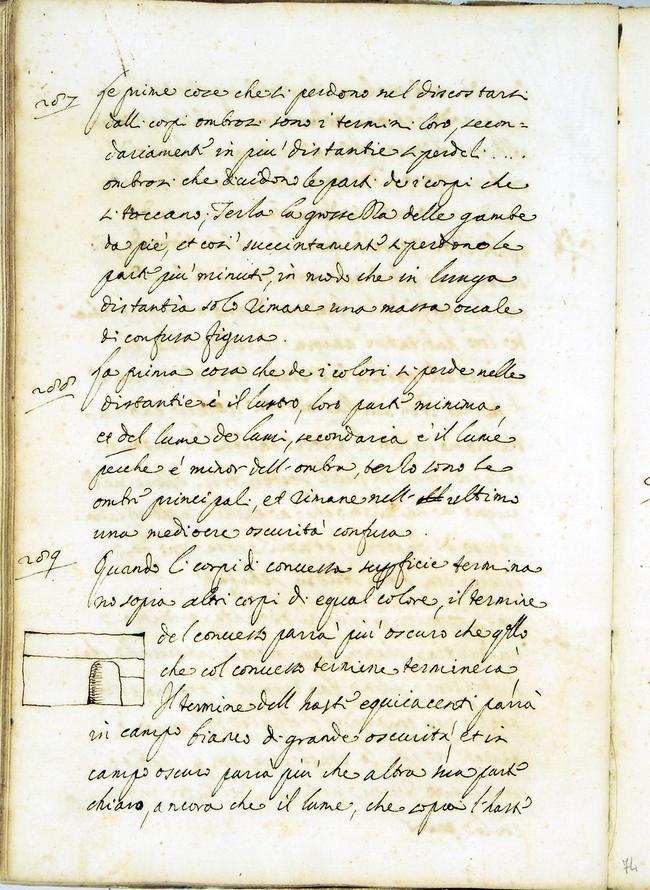 287
Le prime cose che si perdono nel discostarsi
dalli corpi ombrosi sono i termini loro, secon-
dariament^e in piu' distantie si perdeli ....
ombrosi che dividono le parti de i corpi che
si toccano; Terza la grossezza delle gambe
da pie', et cosi' succintament^e si perdono le
part^i piu' minut^e, in modo che in lunga
distantia solo rimane una massa ovale
di confusa figura.
288
La prima cosa che de i colori si perde nelle
distantie é il lustro, loro part^e minima
et del lume de lumi, secondaria é il lume
perche é minor dell'ombra, terzo sono le
ombr^e principali, et rimane nell' ultimo
una mediocre oscurità confusa.
289
Quando li corpi di convessa superficie termina
no sopra altri corpi di equal colore, il termine
del convesso parrà piu' oscuro che q^llo
che col convesso termine terminerà,
Il termine dell hast^e equiiacenti parrà
in campo bianco di grande oscurità et in
campo oscuro parrà piu' che altra sua part^e
chiaro, ancora che il lume, che sopra l'hast^e
74